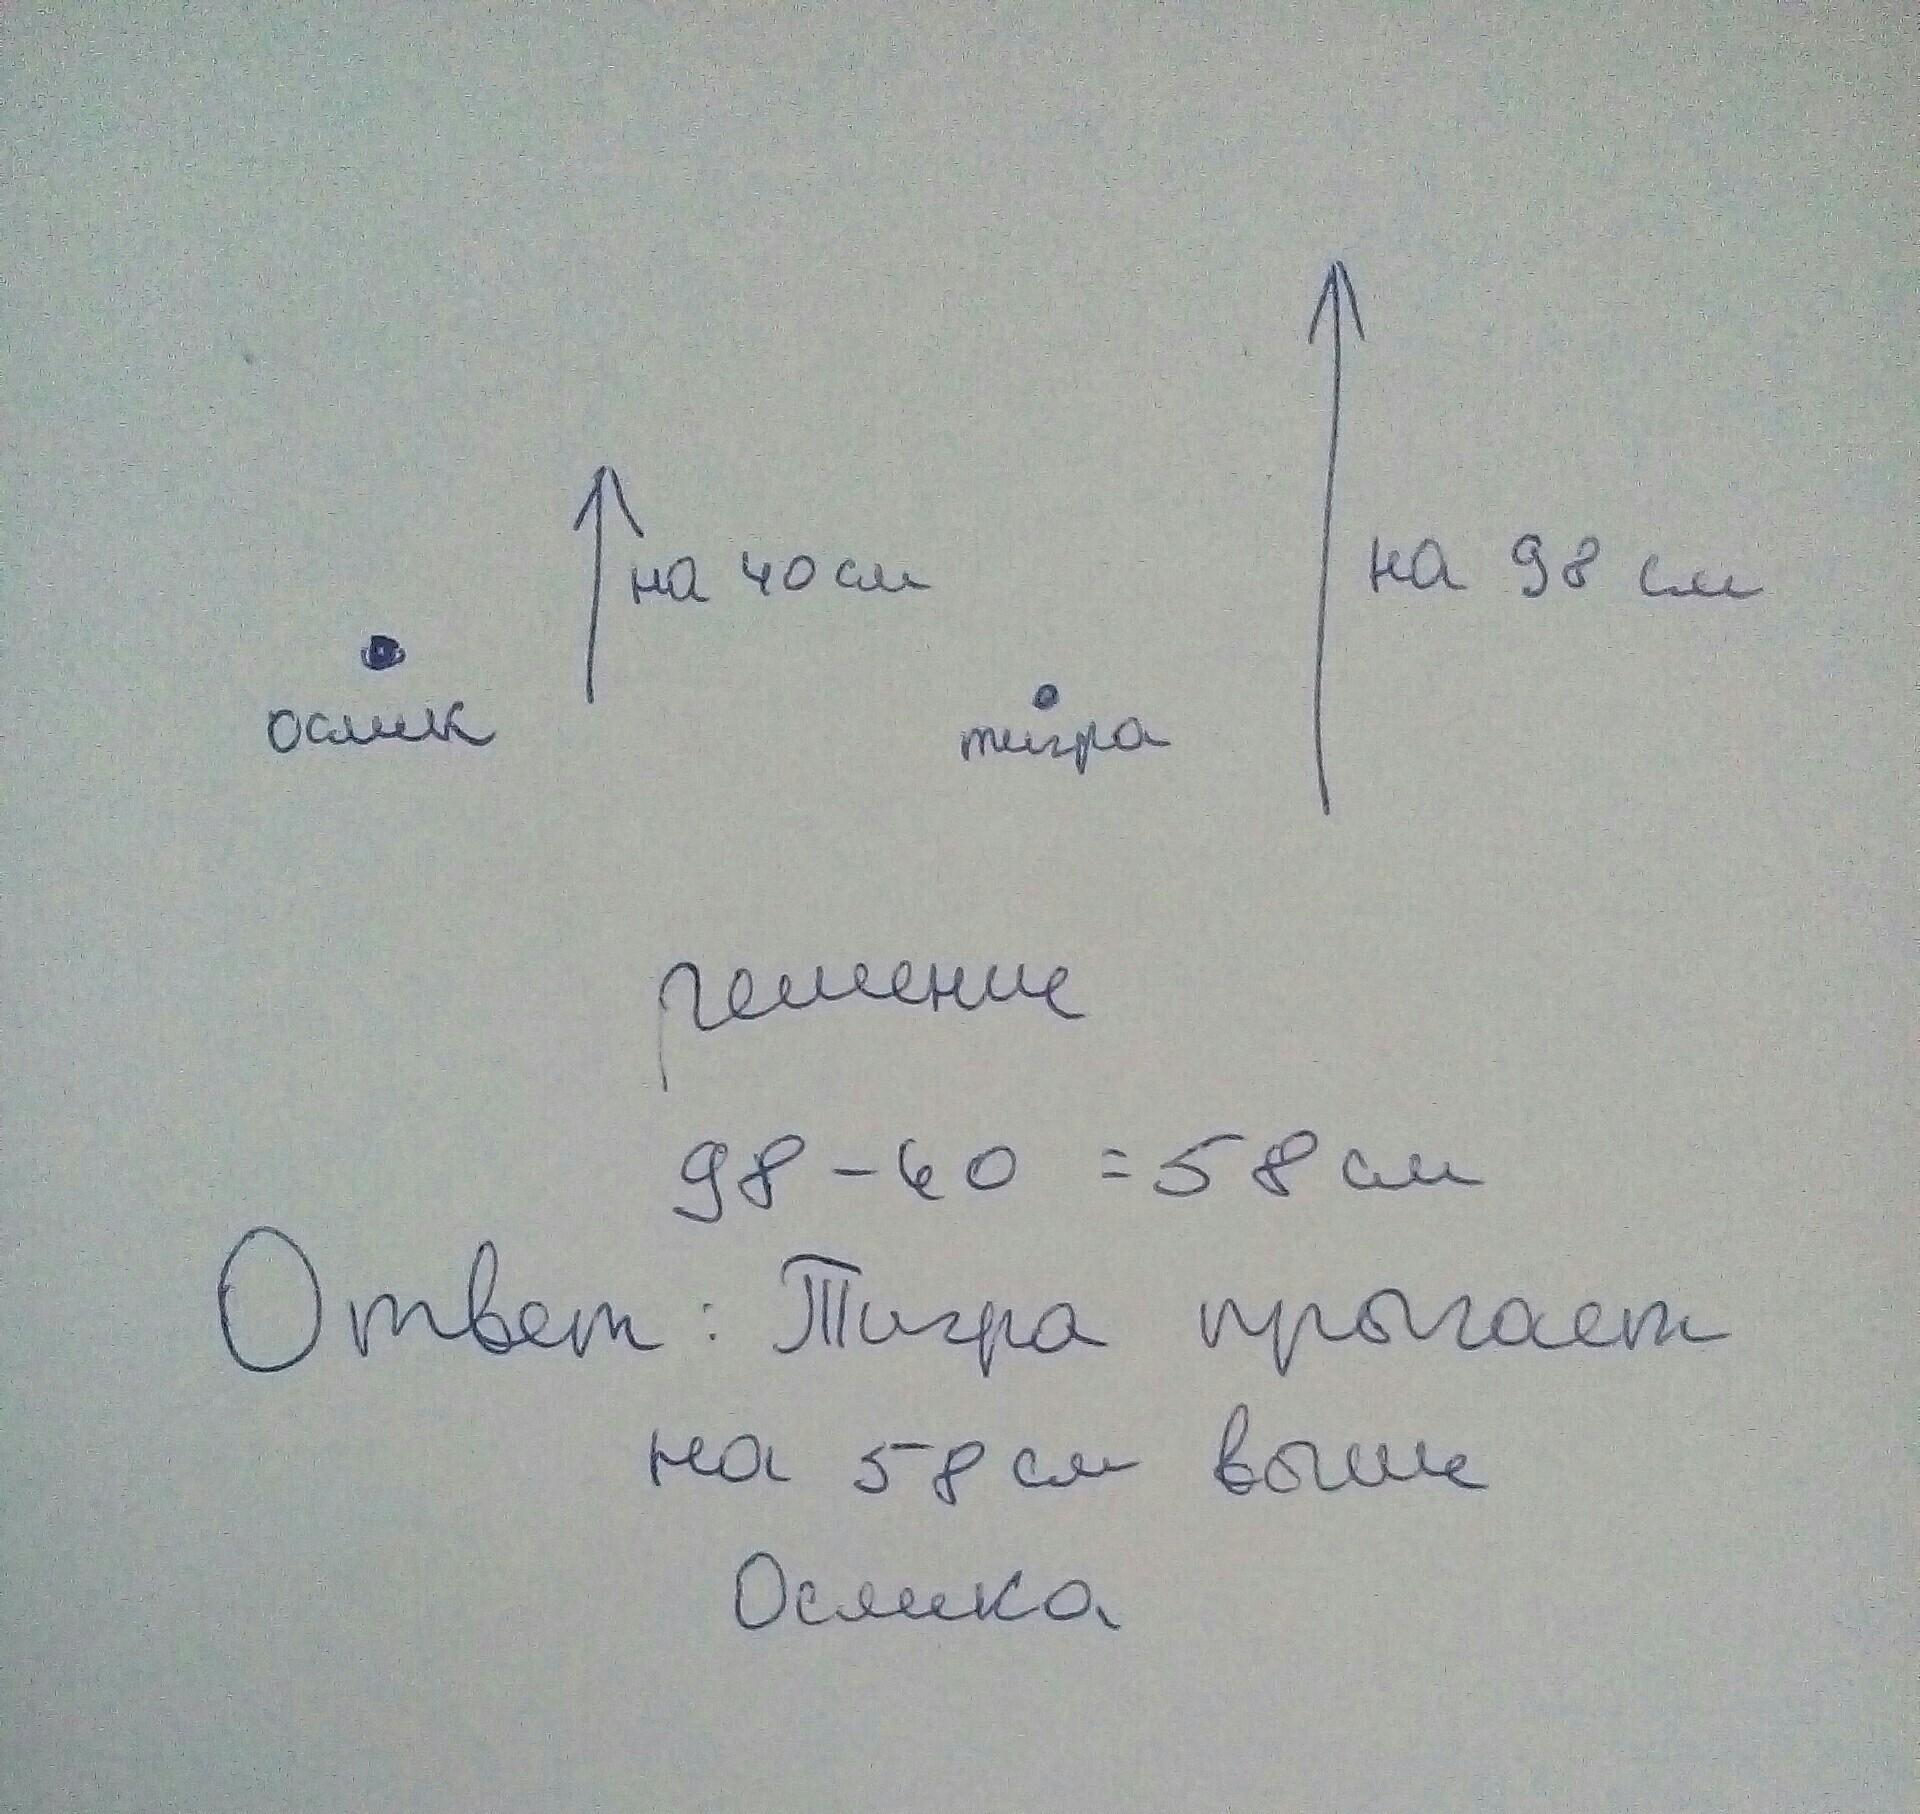 на 40 см
на 98 см
ослик
тигра
решение
98 - 40 = 58 см
Ответ: Тигра прыгает
на 58 см выше
Ослика